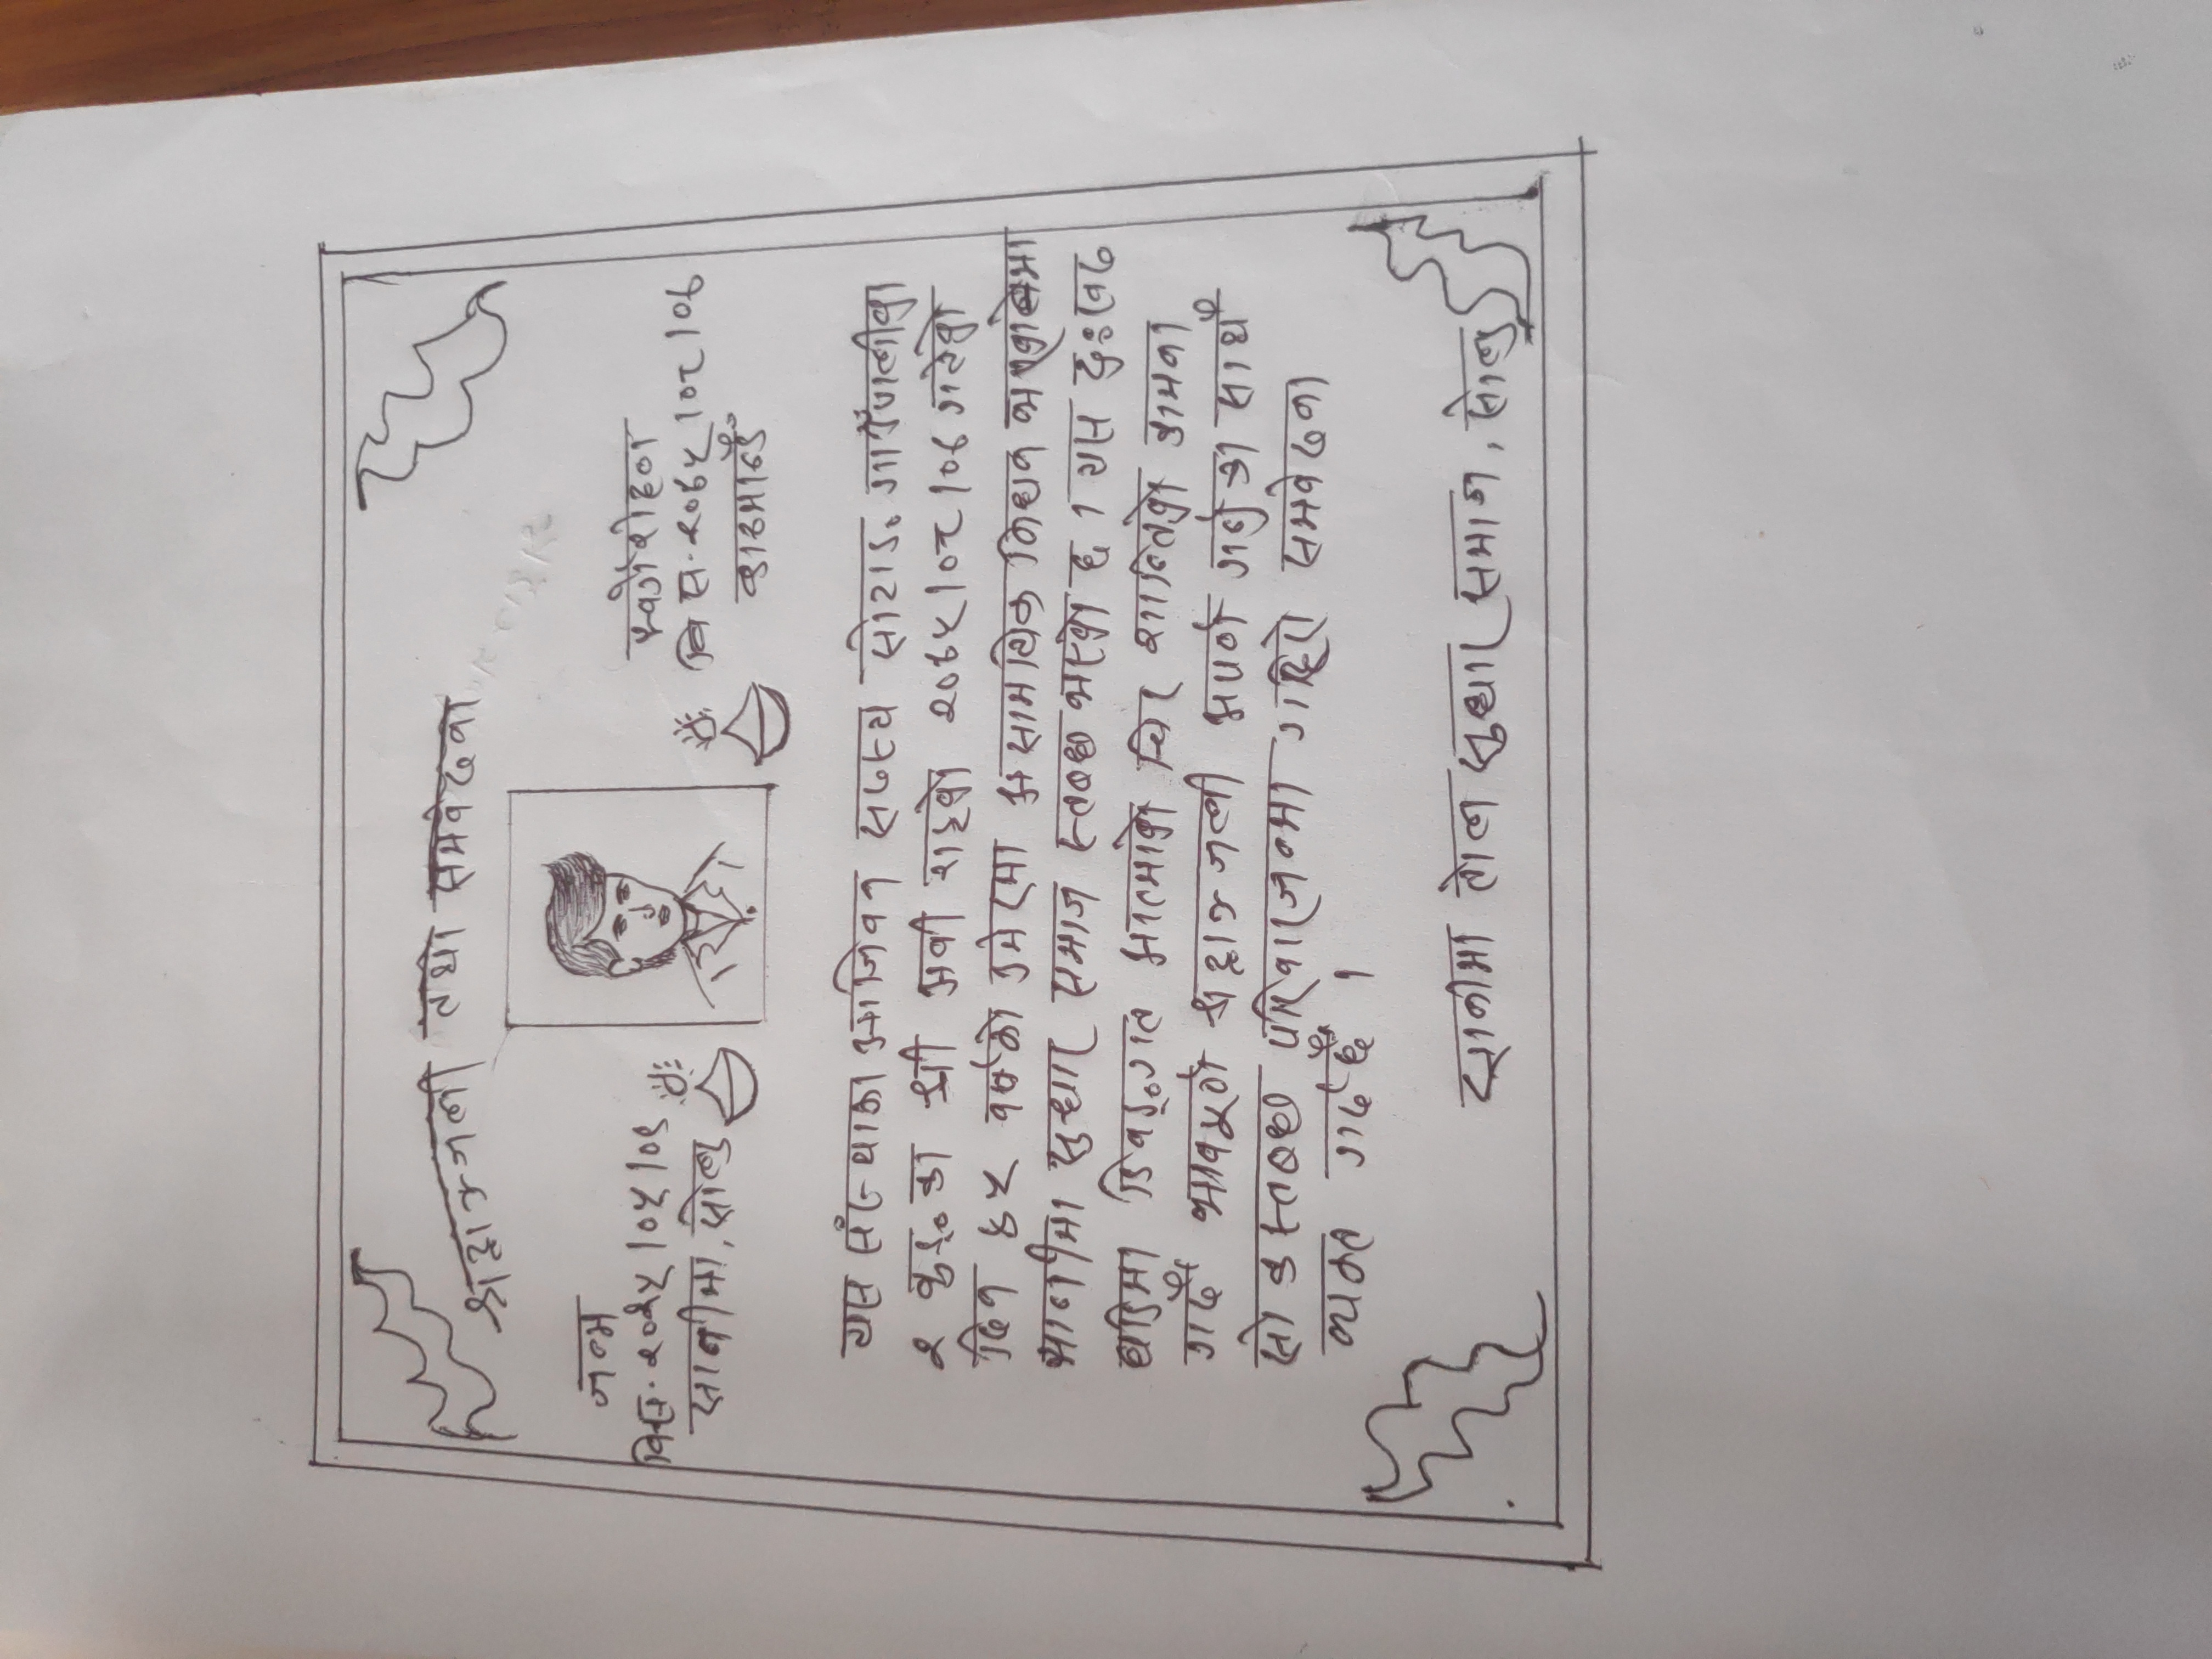 श्रद्धाञ्जली तथा समवेदना
जन्म
वि.स. २०२५।०५।०९
सानीमा, सोलु
स्वर्गारोहण
वि स. २०७५।०८।०७
काठमाडौँ
यस संस्थाका आजिवन सदस्य सोटाङ गाउँपालीका
२ कुङ् का श्री अवी राइको २०७५।०८।०७ गतेको
दिन ४५ वर्षको उमेरमा असामयिक निधन भएकोमा
सानीमा सुधार समाज स्तब्ध भएको छ । यस दुःखद
घडिमा दिवङ्गत आत्माको चिर शान्तिको कामना
गर्दै भावपूर्ण श्रद्धाञ्जली अर्पण गर्नुका साथै
सोकस्तब्ध परिवारजनमा गहिरो समवेदना
व्यक्त गर्दछौँ ।
सानीमा टोल सुधार समाज, सोलु